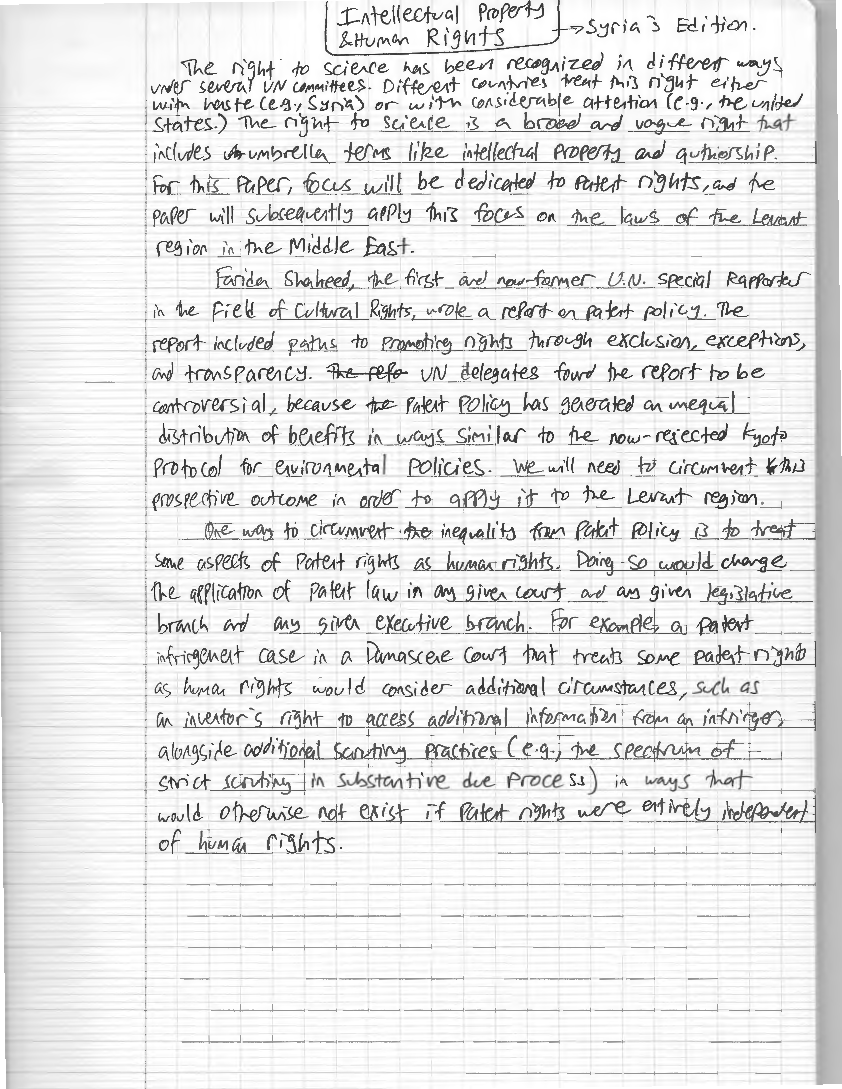 Intellectual Property
& Human Rights → Syria's Edition.
The right to science has been recognized in different ways
under several UN committees. Different countries treat this right either
with haste (e.g., Syria) or with considerable attention (e.g., the united
States.) The right to science is a broad and vague right that
includes umbrella terms like intellectual property and authorship.
For this paper, focus will be dedicated to patent rights, and the
paper will subsequently apply this focus on the laws of the Levant
region in the Middle East.
Farida Shaheed, the first and now-former U.N. special Rapporter
in the Field of Cultural Rights, wrote a report on patent policy. The
report included paths to promoting rights through exclusion, exceptions,
and transparency. The repo UN delegates found the report to be
controversial, because the patent policy has generated an unequal
distribution of benefits in ways similar to the now-rejected Kyoto
Protocol for environmental policies. We will need to circumvent this
prospective outcome in order to apply it to the Levant region.
One way to circumvent the inequality from patent policy is to treat
some aspects of patent rights as human rights. Doing so would change
the application of patent law in any given court and any given legislative
branch and any given executive branch. For example, a patent
infringement case in a Damascene Court that treats some patent rights
as human rights would consider additional circumstances, such as
an inventor's right to access additional information from an infringer,
alongside additional scrutiny practices (e.g., the spectrum of
strict scrutiny in substantive due process) in ways that
would otherwise not exist if patent rights were entirely independent
of human rights.